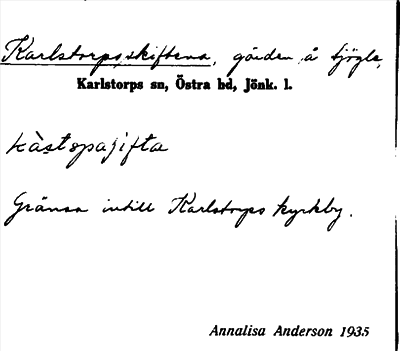 Karlstorpsskiftena, gården å Sjögle,
Karlstorps sn, Östra hd, Jönk. l.
kàstopajifta
Gränsa intill Karlstorps kyrkby.
Annalisa Anderson 1935